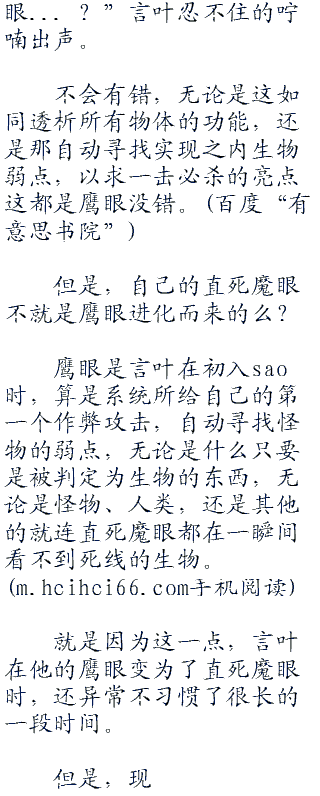 眼... ？”言叶忍不住的咛
喃出声。
不会有错，无论是这如
同透析所有物体的功能，还
是那自动寻找实现之内生物
弱点，以求一击必杀的亮点
这都是鹰眼没错。(百度“有
意思书院”)
但是，自己的直死魔眼
不就是鹰眼进化而来的么？
鹰眼是言叶在初入sao
时，算是系统所给自己的第
一个作弊攻击，自动寻找怪
物的弱点，无论是什么只要
是被判定为生物的东西，无
论是怪物、人类，还是其他
的就连直死魔眼都在一瞬间
看不到死线的生物。
(m.hcihci66.com手机阅读)
就是因为这一点，言叶
在他的鹰眼变为了直死魔眼
时，还异常不习惯了很长的
一段时间。
但是，现